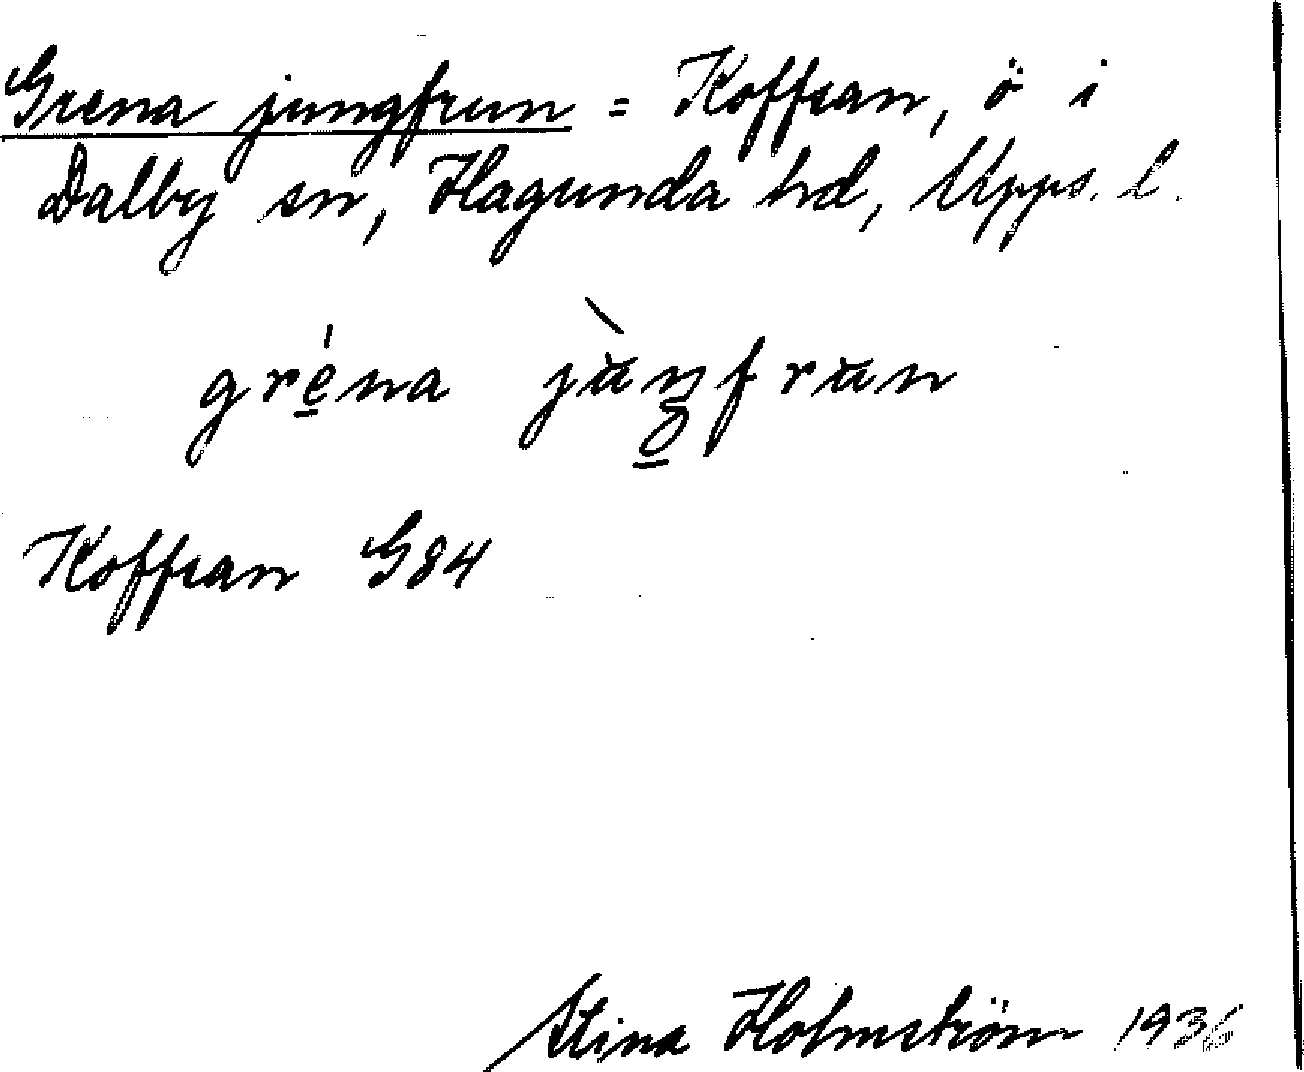 Grena jungfrun = Koffran, ö i
Dalby sn, Hagunda hd, Upps. l.
gré̲na jùŋ̲frun
Koffran G84
Stina Holmström 1936